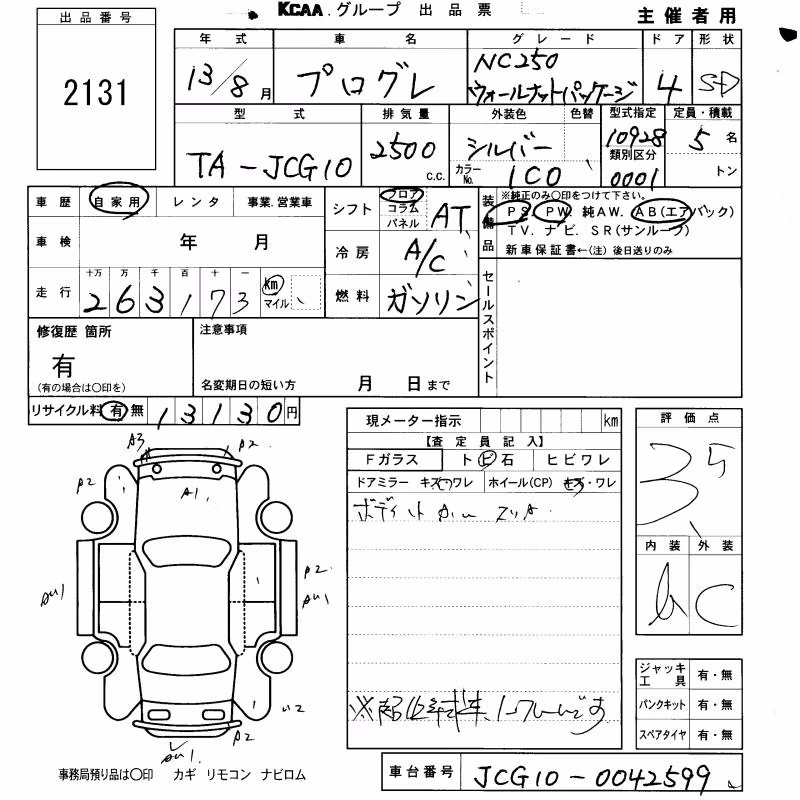 KCAA.グループ 出品票
主催者用
出品番号
2131
年式 車名 グレード ドア 形状
13/8月 プログレ NC250 ウォールナットパッケージ 4 SD
型式 排気量 外装色 色替 型式指定 定員・積載
TA-JCG10 2500 c.c. シルバー 10928 5名
カラーNo. 1C0 類別区分 0001 トン
車歴 自家用 レンタ 事業.営業車
シフト フロア コラム パネル AT
装備品 ※純正のみ〇印をつけて下さい。
PS. PW. 純AW. AB(エアバック)
TV. ナビ. SR(サンルーフ)
新車保証書←(注)後日送りのみ
車検 年 月
冷房 A/C
走行 十万 万 千 百 十 一
263173 km マイル
燃料 ガソリン
セールスポイント
修復歴 箇所
有
(有の場合は〇印を)
注意事項
名変期日の短い方 月 日まで
リサイクル料 有 無 13130円
現メーター指示 km
【査定員記入】
Fガラス トビ石 ヒビワレ
ドアミラー キズ・ワレ ホイール(CP) キズ・ワレ
ボディ
評価点
3.5
内装 外装
C
A3 A2
A2 A1 A2
A2
AU1 AU1
U2
A2
AU1.
ジャッキ工具 有・無
パンクキット 有・無
スペアタイヤ 有・無
事務局預り品は〇印 カギ リモコン ナビロム
車台番号 JCG10-0042599